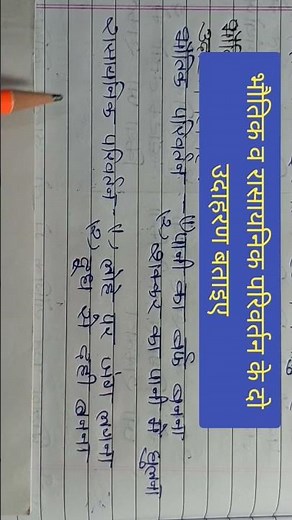 भौतिक व रासायनिक परिवर्तन के दो
उदाहरण बताइए
भौतिक परिवर्तन - 1) पानी का बर्फ बनना
2) शक्कर का पानी में घुलना
रासायनिक परिवर्तन - 1) लोहे पर जंग लगना
2) दूध से दही बनना